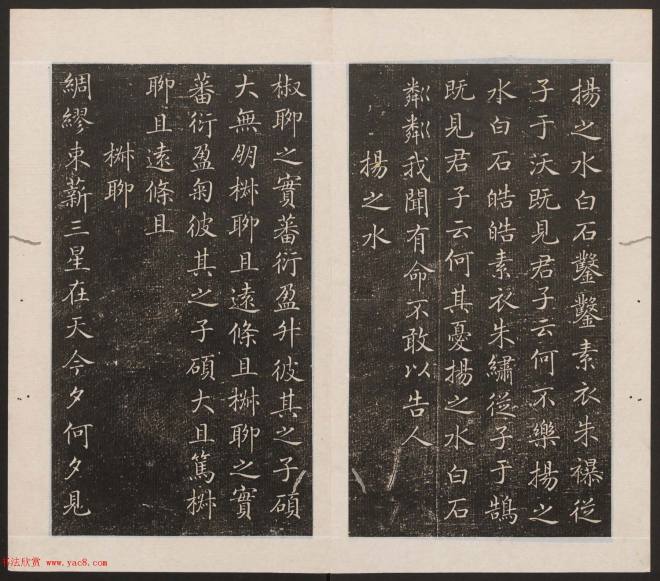 揚之水白石鑿鑿素衣朱襮從
子于沃既見君子云何不樂揚之
水白石皓皓素衣朱繡從子于鵠
既見君子云何其憂揚之水白石
粼粼我聞有命不敢以告人
揚之水
椒聊之實蕃衍盈升彼其之子碩
大無朋椒聊且遠條且椒聊之實
蕃衍盈匊彼其之子碩大且篤椒
聊且遠條且
椒聊
綢繆束薪三星在天今夕何夕見
书法欣赏 www.yac8.com